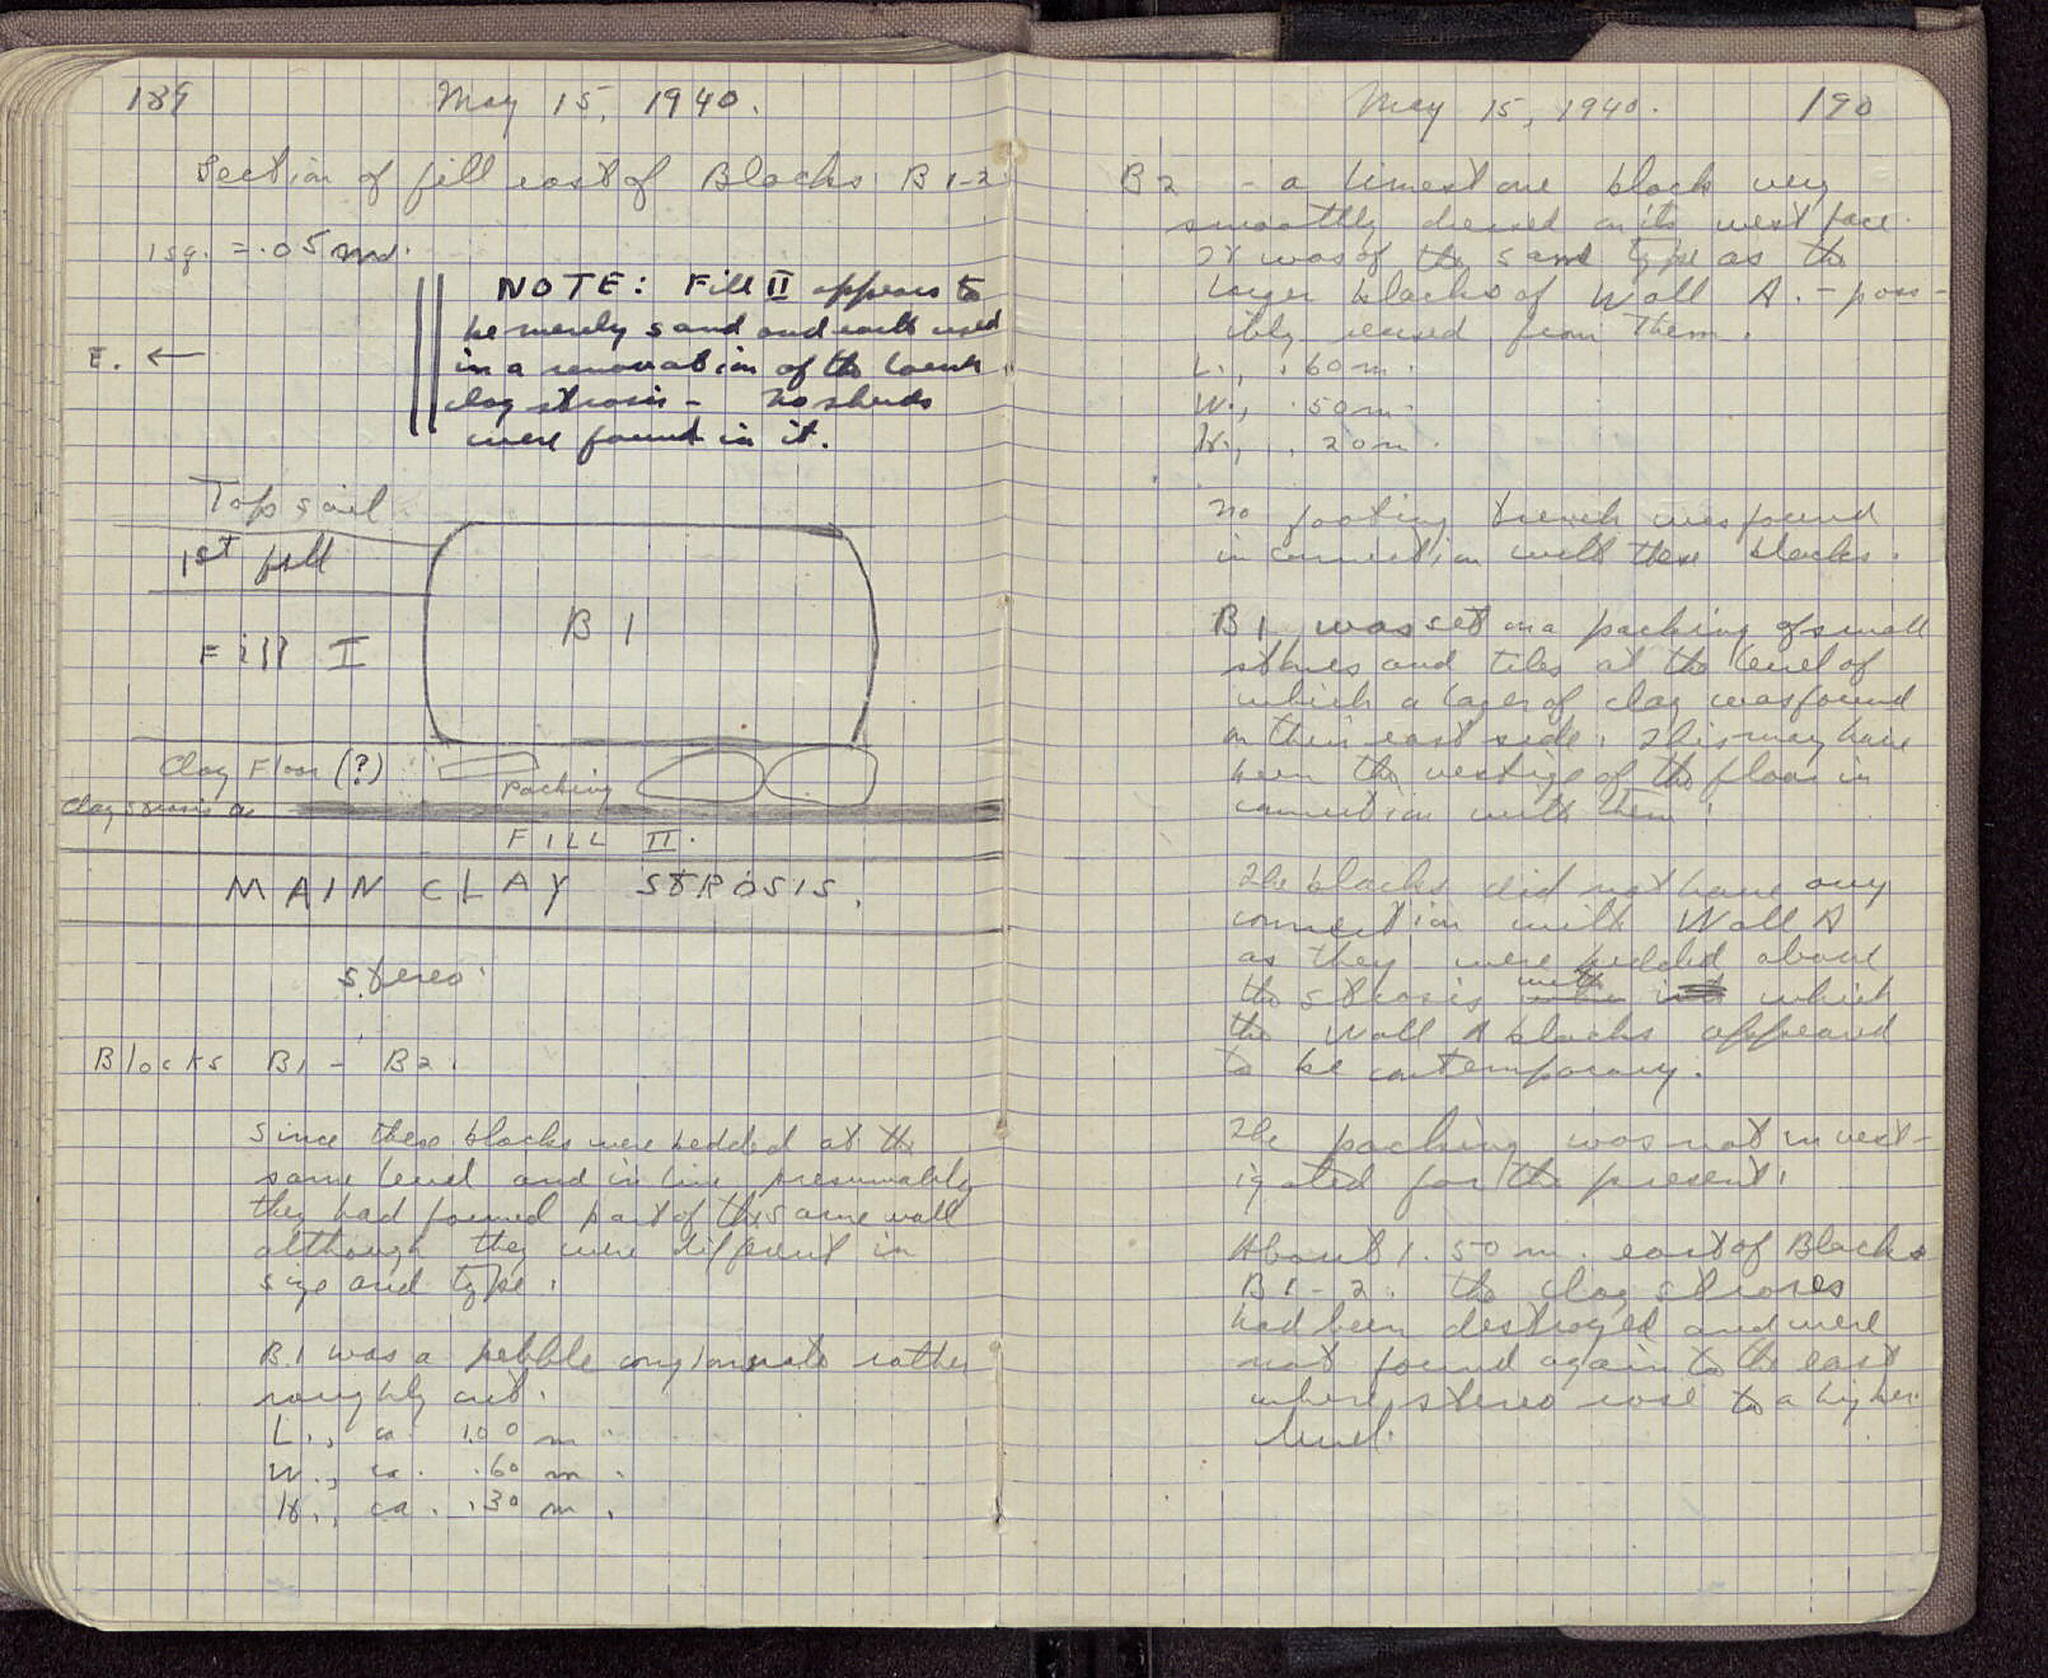 189
May 15, 1940.
Section of fill east of Blocks B 1-2.
1 sq. = .05 m.
NOTE: Fill II appears to
be merely sand and earth used
in a renovation of the lower
clay strosis - No sherds
were found in it.
E. ←
Top soil
1st fill
B 1
Fill I
Clay Floor (?)
Packing
Clay strosis a
FILL II.
MAIN CLAY STROSIS.
stereo.
Blocks B1 - B2.
Since these blocks were bedded at the
same level and in line presumably
they had formed part of the same wall
although they were different in
size and type.
B.1 was a pebble conglomerate rather
roughly cut.
L., ca. 1.00 m.
W., ca. .60 m.
H., ca. .30 m.
May 15, 1940.
190
B 2 - a limestone block very
smoothly dressed on its west face.
It was of the same type as the
larger blocks of Wall A. - poss-
ibly reused from them.
L., .60 m.
W., .50 m.
H., .20 m.
No footing trench was found
in connection with these blocks.
B 1 was set on a packing of small
stones and tiles at the level of
which a layer of clay was found
on their east side. This may have
been the vestige of the floor in
connection with them.
The blocks did not have any
connection with Wall A
as they were bedded above
the strosis with which
the Wall A blocks appeared
to be contemporary.
The packing was not invest-
igated for the present.
About 1.50 m. east of Blocks
B 1-2. the clay stroses
had been destroyed and were
not found again to the east
where stereo rose to a higher
level.